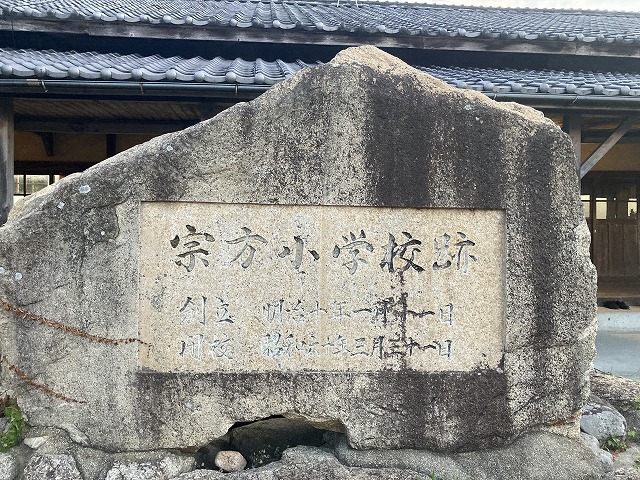 宗方小学校跡
創立 明治十年一月十一日
閉校 昭和六十年三月三十一日